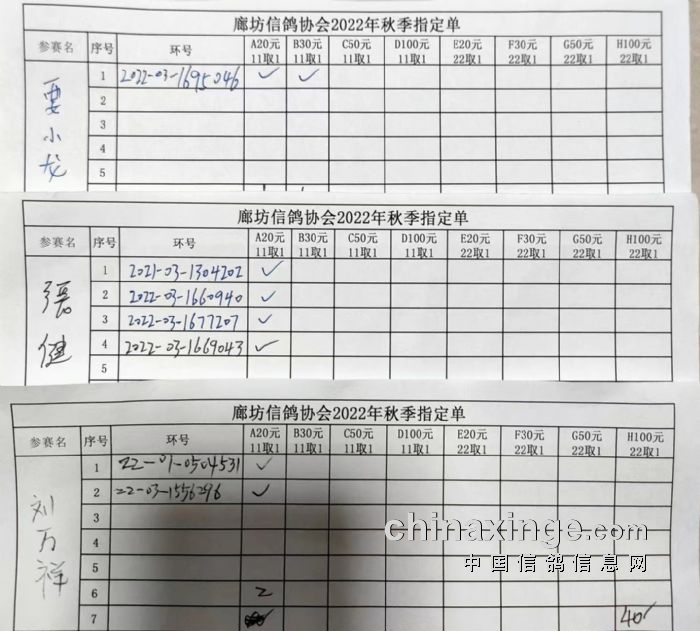 廊坊信鸽协会2022年秋季指定单
参赛名 序号 环号 A20元11取1 B30元11取1 C50元11取1 D100元11取1 E20元22取1 F30元22取1 G50元22取1 H100元22取1
要小龙
1 2022-03-1695046 ✓ ✓
2
3
4
5
廊坊信鸽协会2022年秋季指定单
参赛名 序号 环号 A20元11取1 B30元11取1 C50元11取1 D100元11取1 E20元22取1 F30元22取1 G50元22取1 H100元22取1
張健
1 2021-03-1304202 ✓
2 2022-03-1660940 ✓
3 2022-03-1677207 ✓
4 2022-03-1669043 ✓
5
廊坊信鸽协会2022年秋季指定单
参赛名 序号 环号 A20元11取1 B30元11取1 C50元11取1 D100元11取1 E20元22取1 F30元22取1 G50元22取1 H100元22取1
刘万祥
1 22-01-0504531 ✓
2 22-03-1556296 ✓
3
4
5
6 2
7 40
chinaxinge.com
中国信鸽信息网